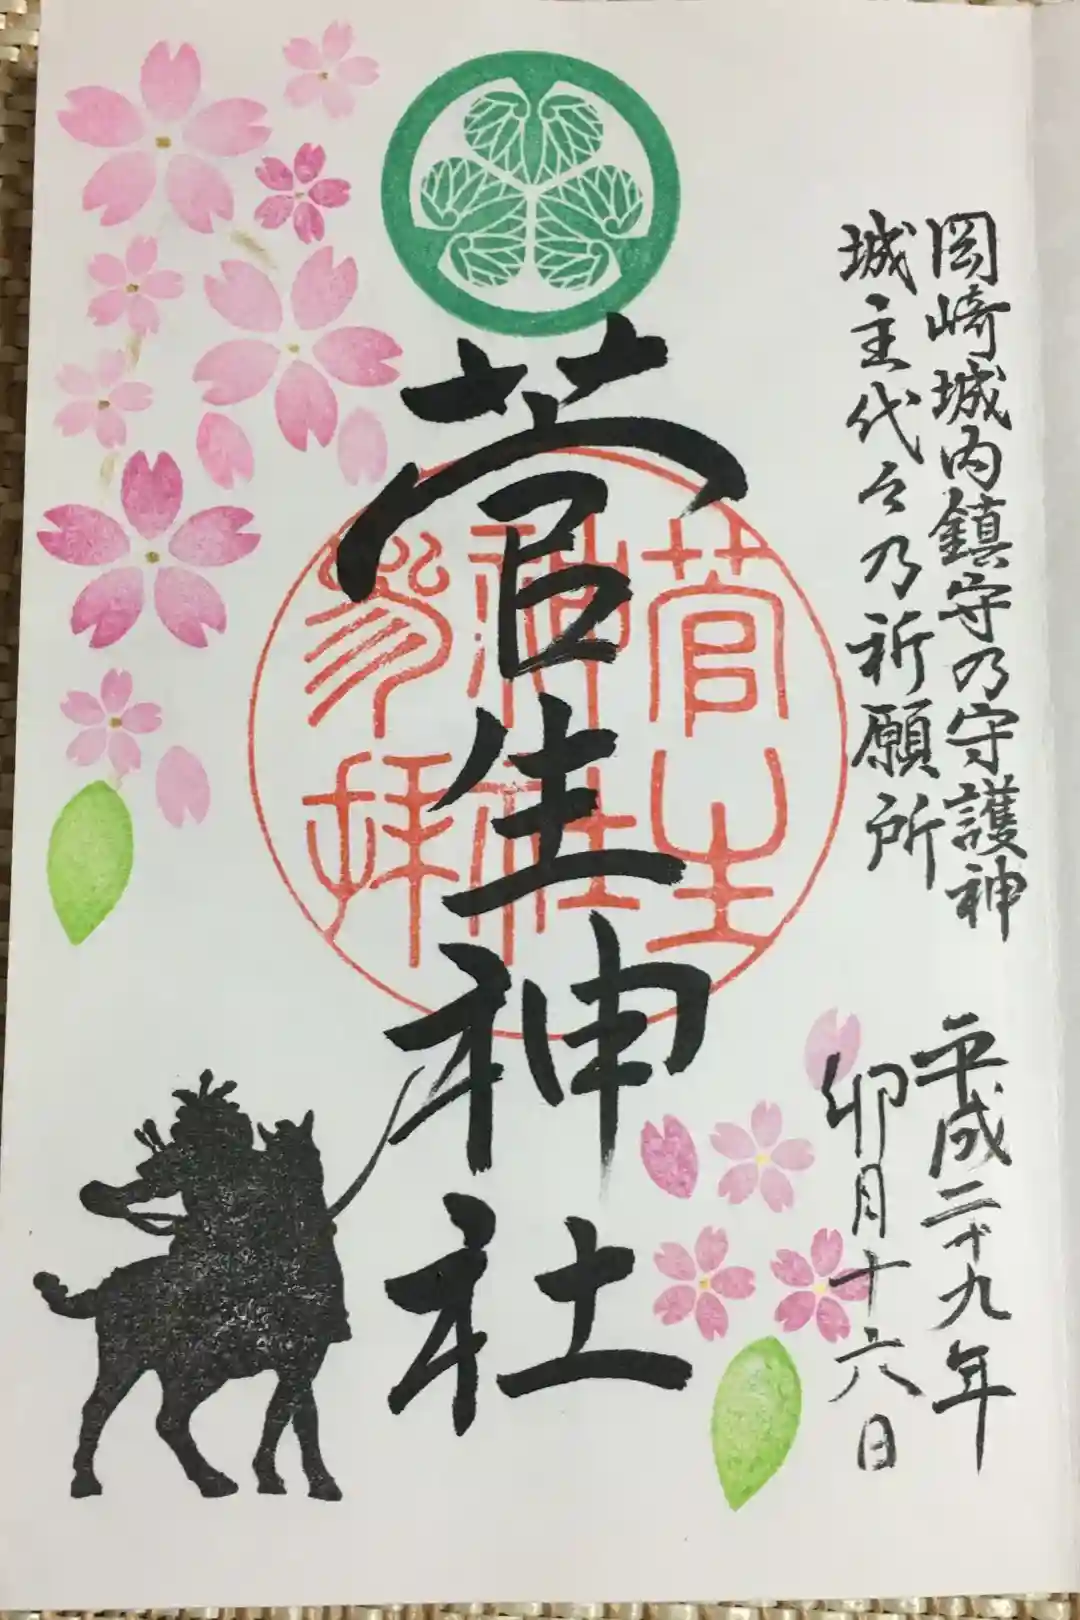 岡崎城内鎮守乃守護神
城主代々乃祈願所
平成二十九年
卯月十六日
菅生神社
菅生
神社
参拝